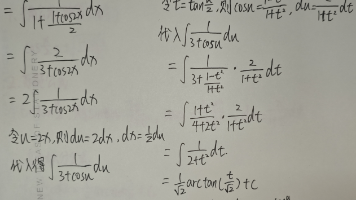 = ∫ 1/(1+(1+cos2x)/2) dx
= ∫ 2/(3+cos2x) dx
= 2∫ 1/(3+cos2x) dx
令u=2x,则du=2dx,dx=½du
代入得∫ 1/(3+cosu) du
令t=tan u/2,则cosu=(1-t²)/(1+t²), du=2/(1+t²) dt
代入∫ 1/(3+cosu) du
= ∫ 1/(3+(1-t²)/(1+t²)) · 2/(1+t²) dt
= ∫ (1+t²)/(4+2t²) · 2/(1+t²) dt
= ∫ 1/(2+t²) dt.
= 1/√2 arctan(t/√2)+c